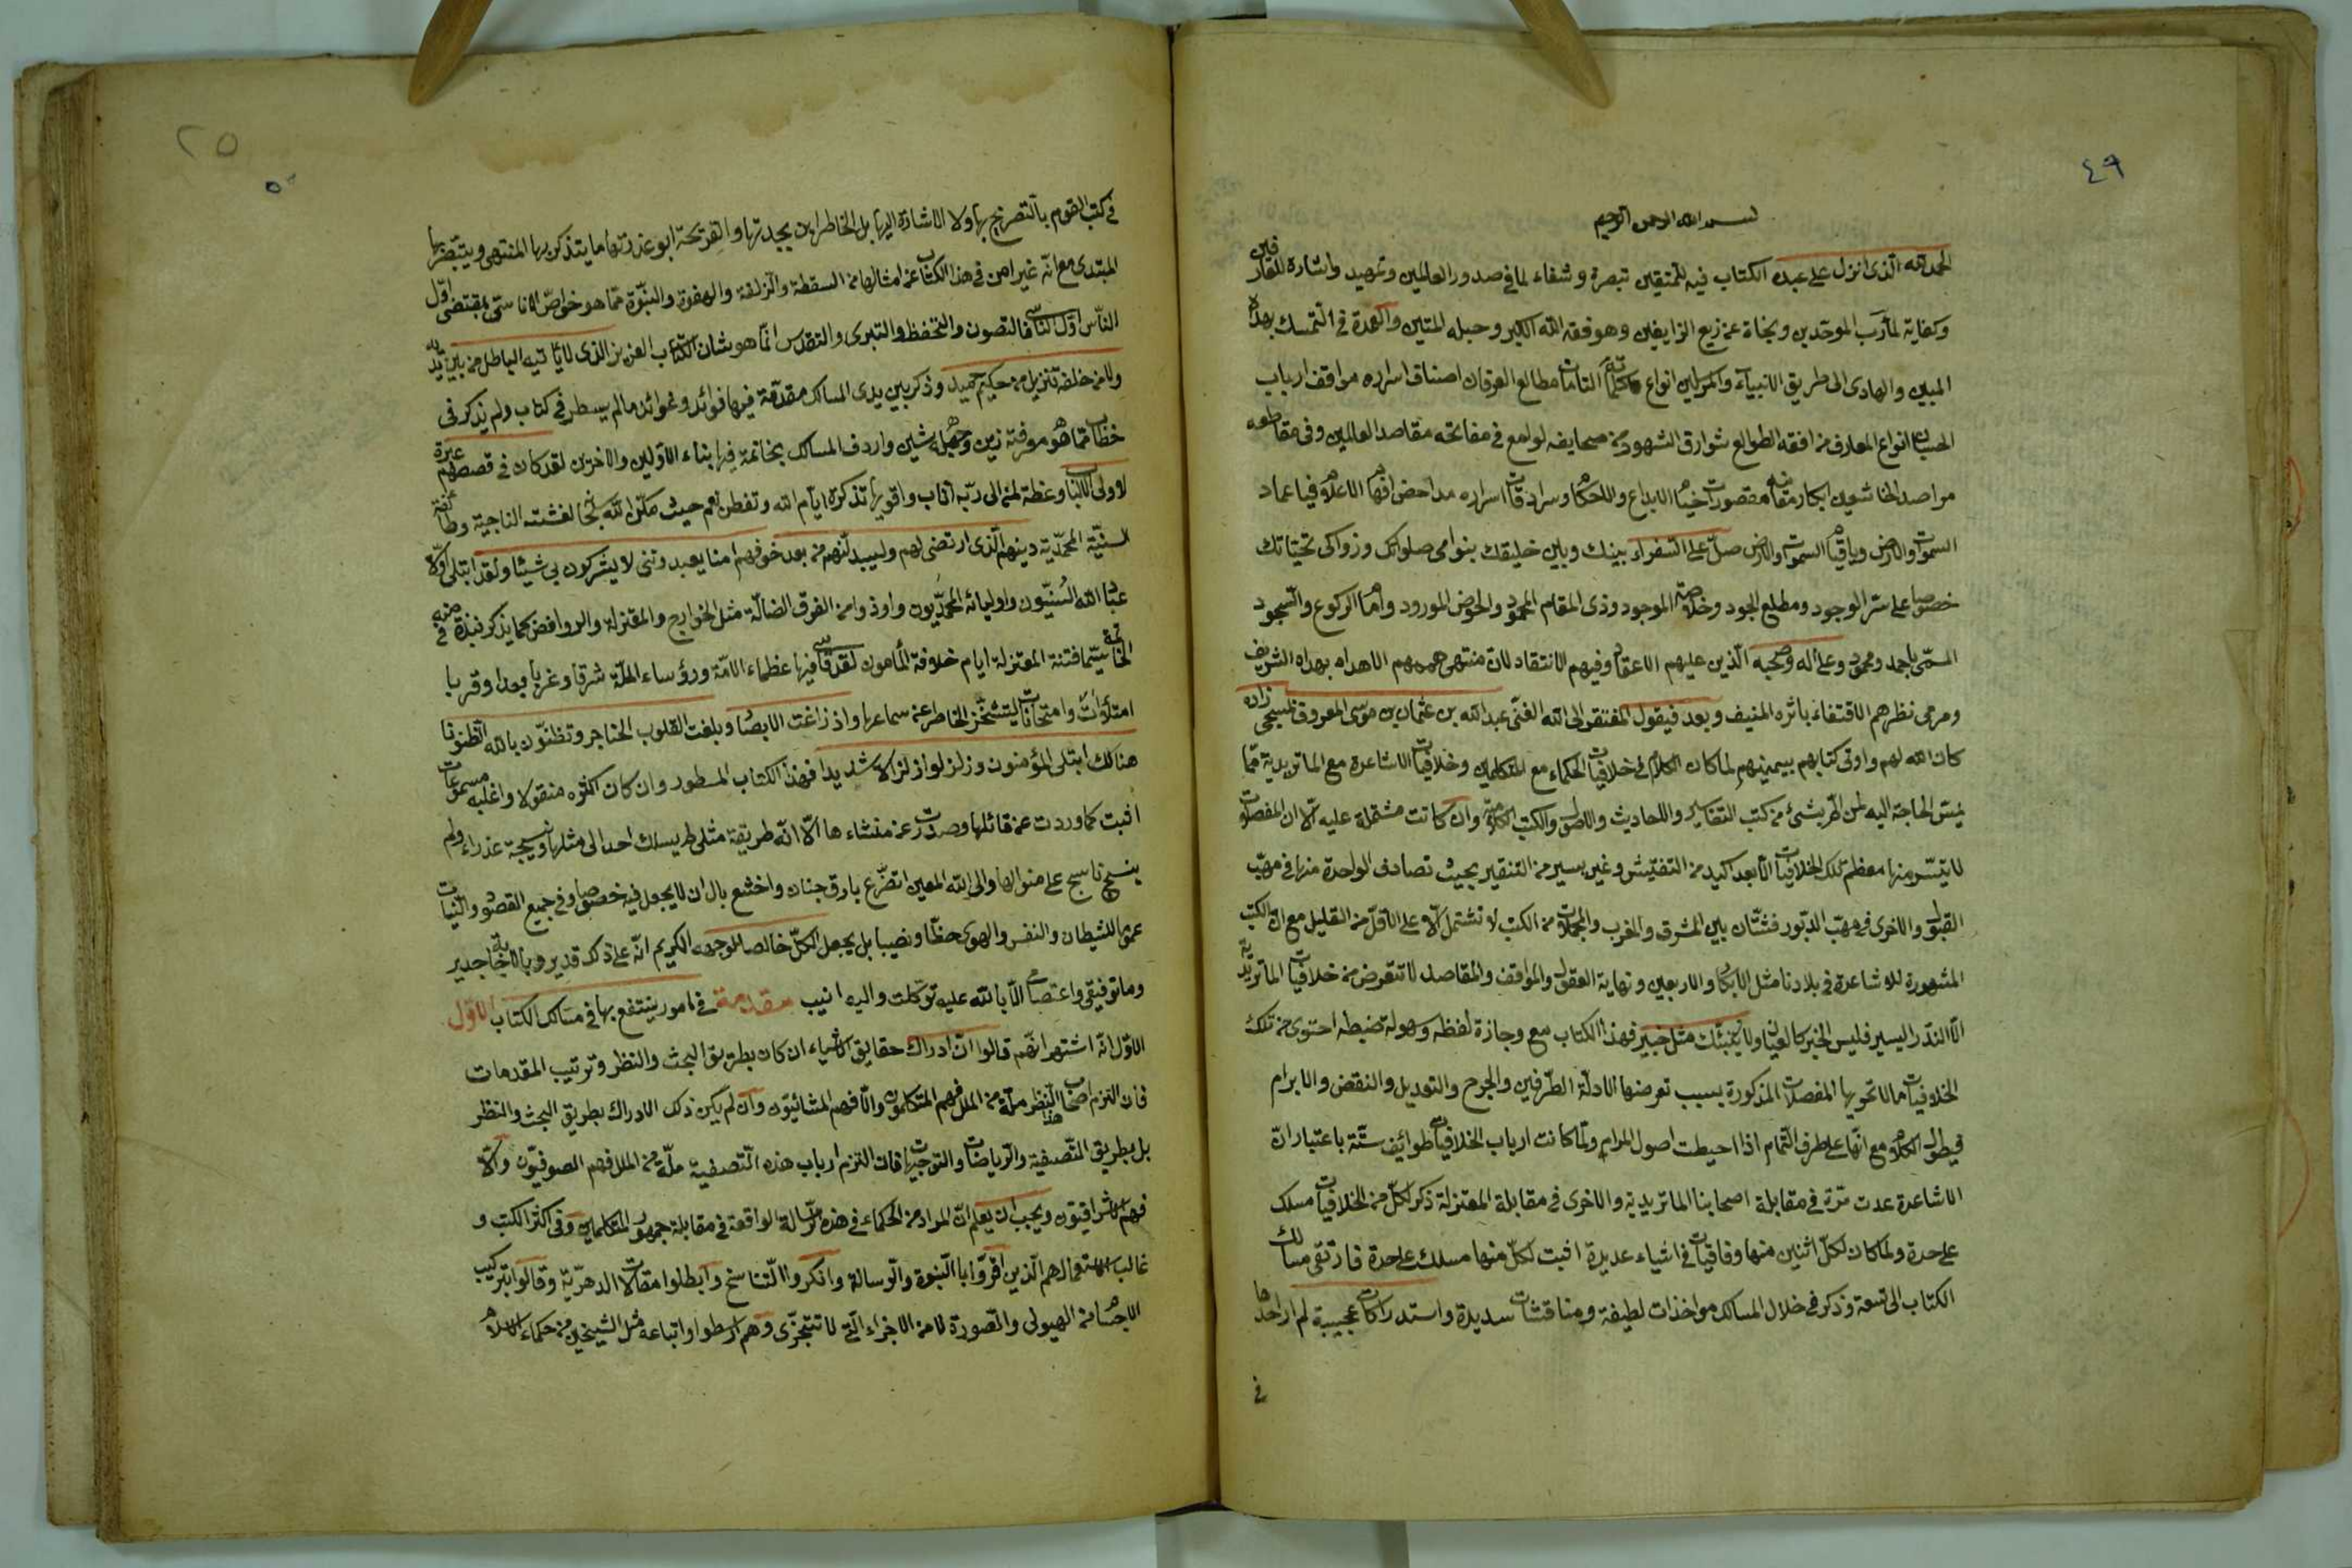 ٤٩
بسم الله الرحمن الرحيم
الحمد لله الذى انزل على عبده الكتاب فيه للمتيقين تبصرة وشفاء لما فى صدور العالمين وتمهيد واشارة للعارفين
وكفاية لمآرب الموحدين ونجاة عن زيغ الزايغين وهو فقه الله الكبير وحبله المتين والعمدة فى التمسك بهداه
المبين والهادى الى طريق الانبياء والمرسلين انواع كلماته التامات مطالع العرفان اصناف اسراره مواقف ارباب
انواع المعارف من افقه الطوالع شوارق الشهود من صحايفه لوامع فى مفاتحه مقاصد العالمين وفى مقاطعه
مراصد الخاشعين ابكار مقصورات الابداع واللاحكام وسرادقات اسراره
السموات والارض وياقيام السموات والارض صل على السفراء بينك وبين خليقك بنوامى صلواتك وزواكى تحيتاتك
خصوصا على سر الوجود ومطلع الجود وخلاصة الموجود وذى المقام المحمود والحوض المورود وامام الركوع والسجود
المسمى باحمد ومحمود وعلى اله وصحبه الذين عليهم الاعتقاد وفيهم الانتقاد لان منتهى هممهم الاهداه بهداه الشريف
ومرمى نظرهم الاقتفاء باثره المنيف وبعد فيقول المفتقر الى الله الغنى عبد الله بن عثمان بن موسى المعروف لمسجى زاده
كان الله لهم واوتى كتابهم بيمينهم لما كان الكلام فى خلافيات الحكماء مع المتكلمين وخلافيات الاشاعرة مع الماتريدية مما
يمس الحاجة اليه لمن اقر بشئ من كتب التفاسير واللحاديث والاصول والكتب الكلامية وان كانت مشتملة عليه الا ان المفصلات
لا يتيسر منها معظم تلك الخلافيات الا بعد اكيد من التفتيش وغير يسير من التنقير بحيث تصادف الواحدة منها فى مهب
القبول والاخرى فى مهب الدبور فشتان بين المشرق والمغرب والمجملات من الكتب لا تشتمل الا على الاقل من القليل مع ان الكتب
المشهورة للاشاعرة فى بلادنا مثل الابكار والاربعين ونهاية العقول والمواقف والمقاصد لا تتعرض من خلافيات الماتريدية
الا النذر اليسير فليس الخبر كالعيان ولا ينبئك مثل خبير فهذا الكتاب مع وجازة لفظه وسهولة ضبطه احتوى من تلك
الخلافيات ما لا تحويها المفصلات المذكورة بسبب تعرضها الادلة الطرفين والجرح والتعديل والنقض والابرام
فيطول الكلام مع انها على طرف الثمام اذا احيطت اصول المرام ولما كانت ارباب الخلافيات طوائف ستة باعتبار ان
الاشاعرة عدت مرة فى مقابلة اصحابنا الماتريدية والاخرى فى مقابلة المعتزلة ذكر لكل من الخلافيات مسلك
على حدة ولما كان لكل اثنين منها وفاقيات فى اشياء عديدة اثبت لكل منها مسلك على حدة فارتقى مسالك
الكتاب الى تسعة وذكر فى خلال المسالك مواخذات لطيفة ومناقشات سديدة واستدراكات عجيبة لم ار احدا
فى
٢٥
٥٠
فى كتب القوم بالتصريح بها ولا الاشارة اليها بل الخاطر ابن بجدتها والقريحة ابو عذرتها ما يتذكر بها المنتهى ويتبصر بها
المبتدى مع انه غير امن فى هذا الكتاب عن امثالها من السقطة والزلقة والهفوة والنبوة مما هو خواص الاناسى بمقتضى اول
الناس اول الناسى فالتصون والتحفظ والتبرى والتقدس انما هو شان الكتاب العزيز الذى لا يأتيه الباطل من بين يديه
ولا من خلفه تنزيل من حكيم حميد وذكر بين يدى المسالك مقدمة فيها فوائد وعوائد ما لم يسطر فى كتاب ولم يذكر فى
خطاب مما هو معرفته زين وجهله شين واردف المسالك بخاتمة فيها ابناء الاولين والاخرين لقد كان فى قصصهم عبرة
لاولى الالباب وعظة لمن الى ربه اناب واقويها تذكرة ايام الله وتفطن نعم حيث مكن الله تعالى لفئته الناجية وطائفة
السنية المحمدية دينهم الذى ارتضى لهم وليبدلنهم من بعد خوفهم امنا يعبدوننى لا يشركون بى شيئا ولقد ابتلى اولا
عباد الله السنيون واوليائه المحمديون واوذوا من الفرق الضالة مثل الخوارج والمعتزلة والروافض كما يذكر نبذة منه فى
الخاتمة سيما فتنة المعتزلة ايام خلافة المأمون لقد قاسى فيها عظماء الامة ورؤساء الملة شرقا وغربا بعدا وقربا
امتلاات وامتحانات ليتشمئز الخاطر عن سماعها واذ زاغت الابصار وبلغت القلوب الحناجر وتظنون بالله الظنونا
هنالك ابتلى المؤمنون وزلزلوا زلزالا شديدا فهذا الكتاب المسطور وان كان اكثره منقولا واغلبه مسموعات
اثبت كما وردت عن قائلها وصدرت عن منشاءها الا انه طريقة مثلى لم يسلك احد الى مثلها ونسيجة عذراء ولم
ينسج ناسج على منوالها والى الله المعين اتضرع بارق جنان واخشع بال ان لا يجعل فيه خصوصا وفى جميع القصود والنيات
عموما للشيطان والنفس والهوى حظا ونصيبا بل يجعل الكل خالصا لوجهه الكريم انه على ذلك قدير وبالاجابة جدير
وما توفيقى واعتصامى الا بالله عليه توكلت واليه انيب مقدمة فى امور ينتفع بها فى مسالك الكتاب الاول
الاول انه اشتهر انهم قالوا ان ادراك حقايق الاشياء ان كان بطريق البحث والنظر وترتيب المقدمات
فان التزم اصحاب هذا النظر ملة من الملل فهم المتكلمون والا فهم المشائيون وان لم يكن ذلك الادراك بطريق البحث والنظر
بل بطريق التصفية والرياضات والتوجيهات فان التزم ارباب هذه التصفية ملة من الملل فهم الصوفيون والا
فهم الاشراقيون ويجب ان يعلم ان المراد من الحكماء فى هذه الرسالة الواقعة فى مقابلة جمهور المتكلمين وفى اكثر الكتب و
غالب الاستعمال هم الذين اقروا بالنبوة والرسالة وانكروا التناسخ وابطلوا مقالات الدهرية وقالوا بتركيب
الاجسام من الهيولى والصورة لا من الاجزاء التى لا تتجزى وهم ارسطوا واتباعه مثل الشيخين من حكماء الاسلام